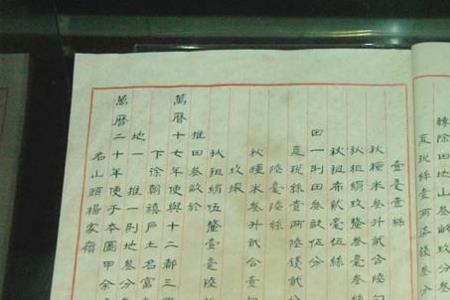 糠除田地山叁畝玖分
夏税絲壹兩伍錢叁分
壹毫壹絲
秋糧米叁升貳合陸勺
秋租絹玖釐叁毫叁絲
秋租布貳毫伍絲
田一則田叁畝伍分
夏税絲壹兩陸錢貳分
陸毫陸絲
秋糧米叁升貳合壹勺
玖撮
秋租絹伍釐壹毫陸
推田叁畝於
萬曆十七年使與十二都三
下徐朝積戶土名富
地一推一則地叁分叁
萬曆二十年使于本圖甲余
名山頭楊家嶺